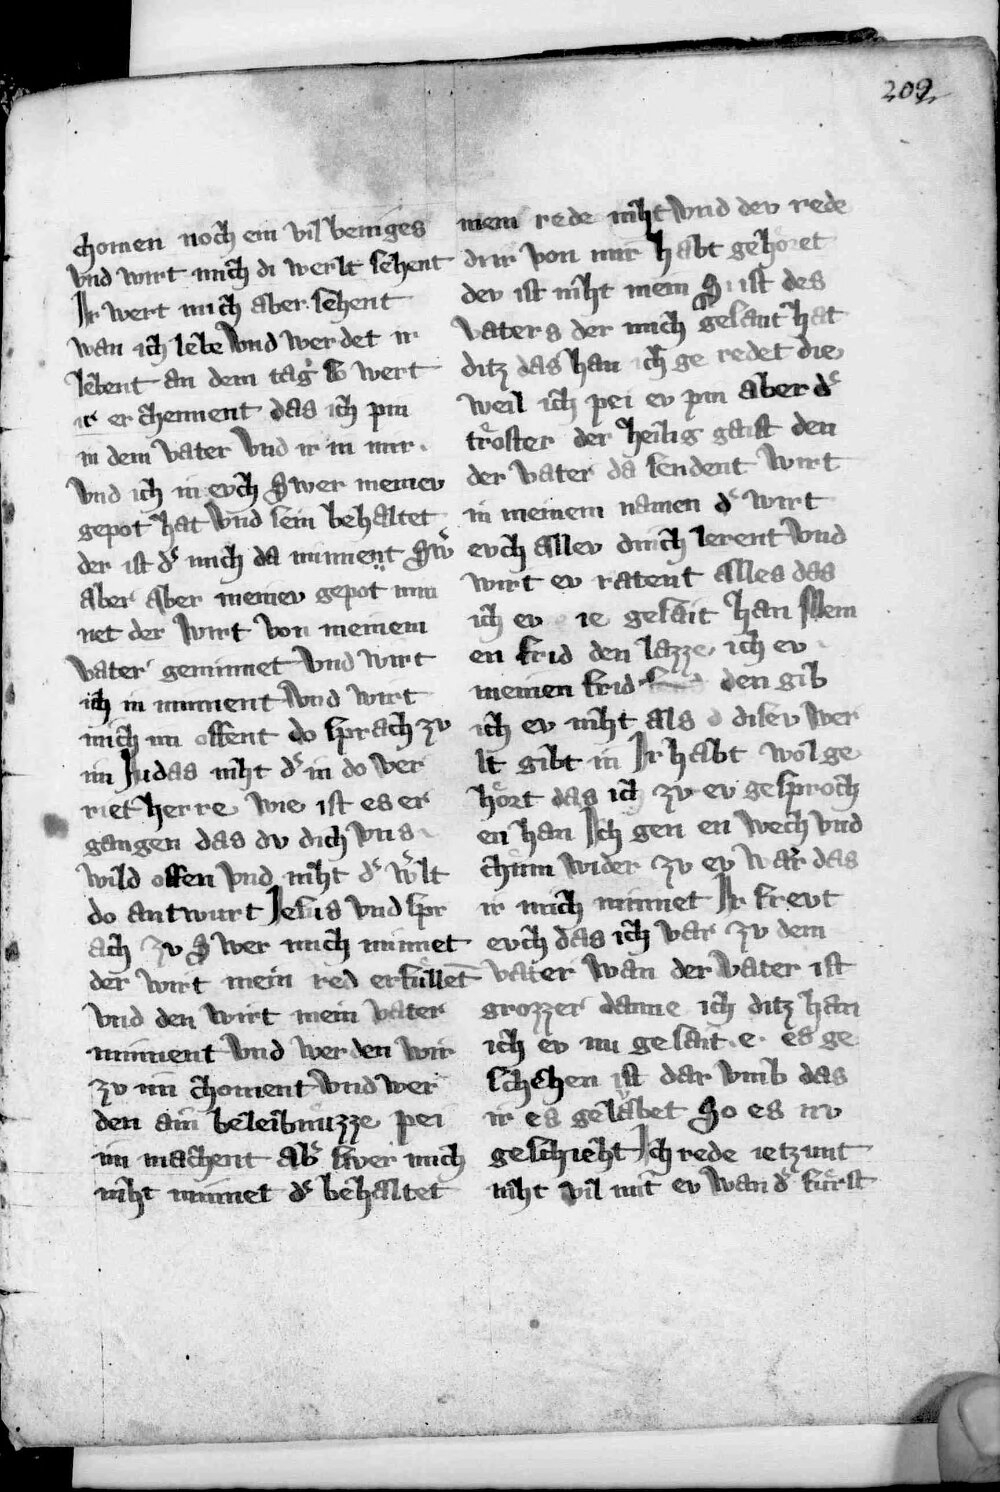 209
chomen noch ein vil beniges
vnd wirt mich di werlt sehent
Ir wert mich aber sehent
wan ich lebe vnd werdet ir
lebent an dem tag so wert
ir er chennent das ich pin
in dem vater vnd ir in mir.
vnd ich in evch Swer meinev
gepot hat vnd sein behaltet
der ist d͛ mich da minnent Sw͛
aber aber meinev gepöt min
net der wirt von meinem
vater geminnet vnd wirt
ich in minnent vnd wirt
mich im offent do sprach zv
im Judas niht d͛ in do ver
riet herre wie ist es er
gangen das dv dich vns
wild offen vnd niht d͛ w͛lt
do antwurt Jesus vnd spr
ach zv Swer mich minnet
der wirt mein red erfullet
vnd den wirt mein vater
minnent vnd werden wir
zv im choment vnd wer
den ain beleibnuzze pei
im machent ab͛ swer mich
niht minnet d͛ behaltet
mein rede niht vnd dev rede
di ir von mir habt gehöret
dev ist niht mein Si ist des
vaters der mich gesant hat
ditz das han ich ge redet die
weil ich pei ev pin aber d͛
tröster der heilig gaist den
der vater da sendent wirt
in meinem namen d͛ wirt
evch allev dinch lerent vnd
wirt ev ratent alles das
ich ev ie gesait han Mein
en frid den lazze ich ev
meinen frid den gib
ich ev niht als disev wer
lt gibt in Ir habt wol ge
hört das ich zv ev gesproch
en han Ich gen en wech vnd
chum wider zv ev wār das
ir mich minnet Ir frevt
evch das ich var zv dem
vater wan der vater ist
grozzer danne ich ditz han
ich ev nu gesait .e. es ge
schehen ist dar vmb das
ir es gelaubet So es nv
geschieht Ich rede ietzunt
niht vil mit ev wan d͛ furst